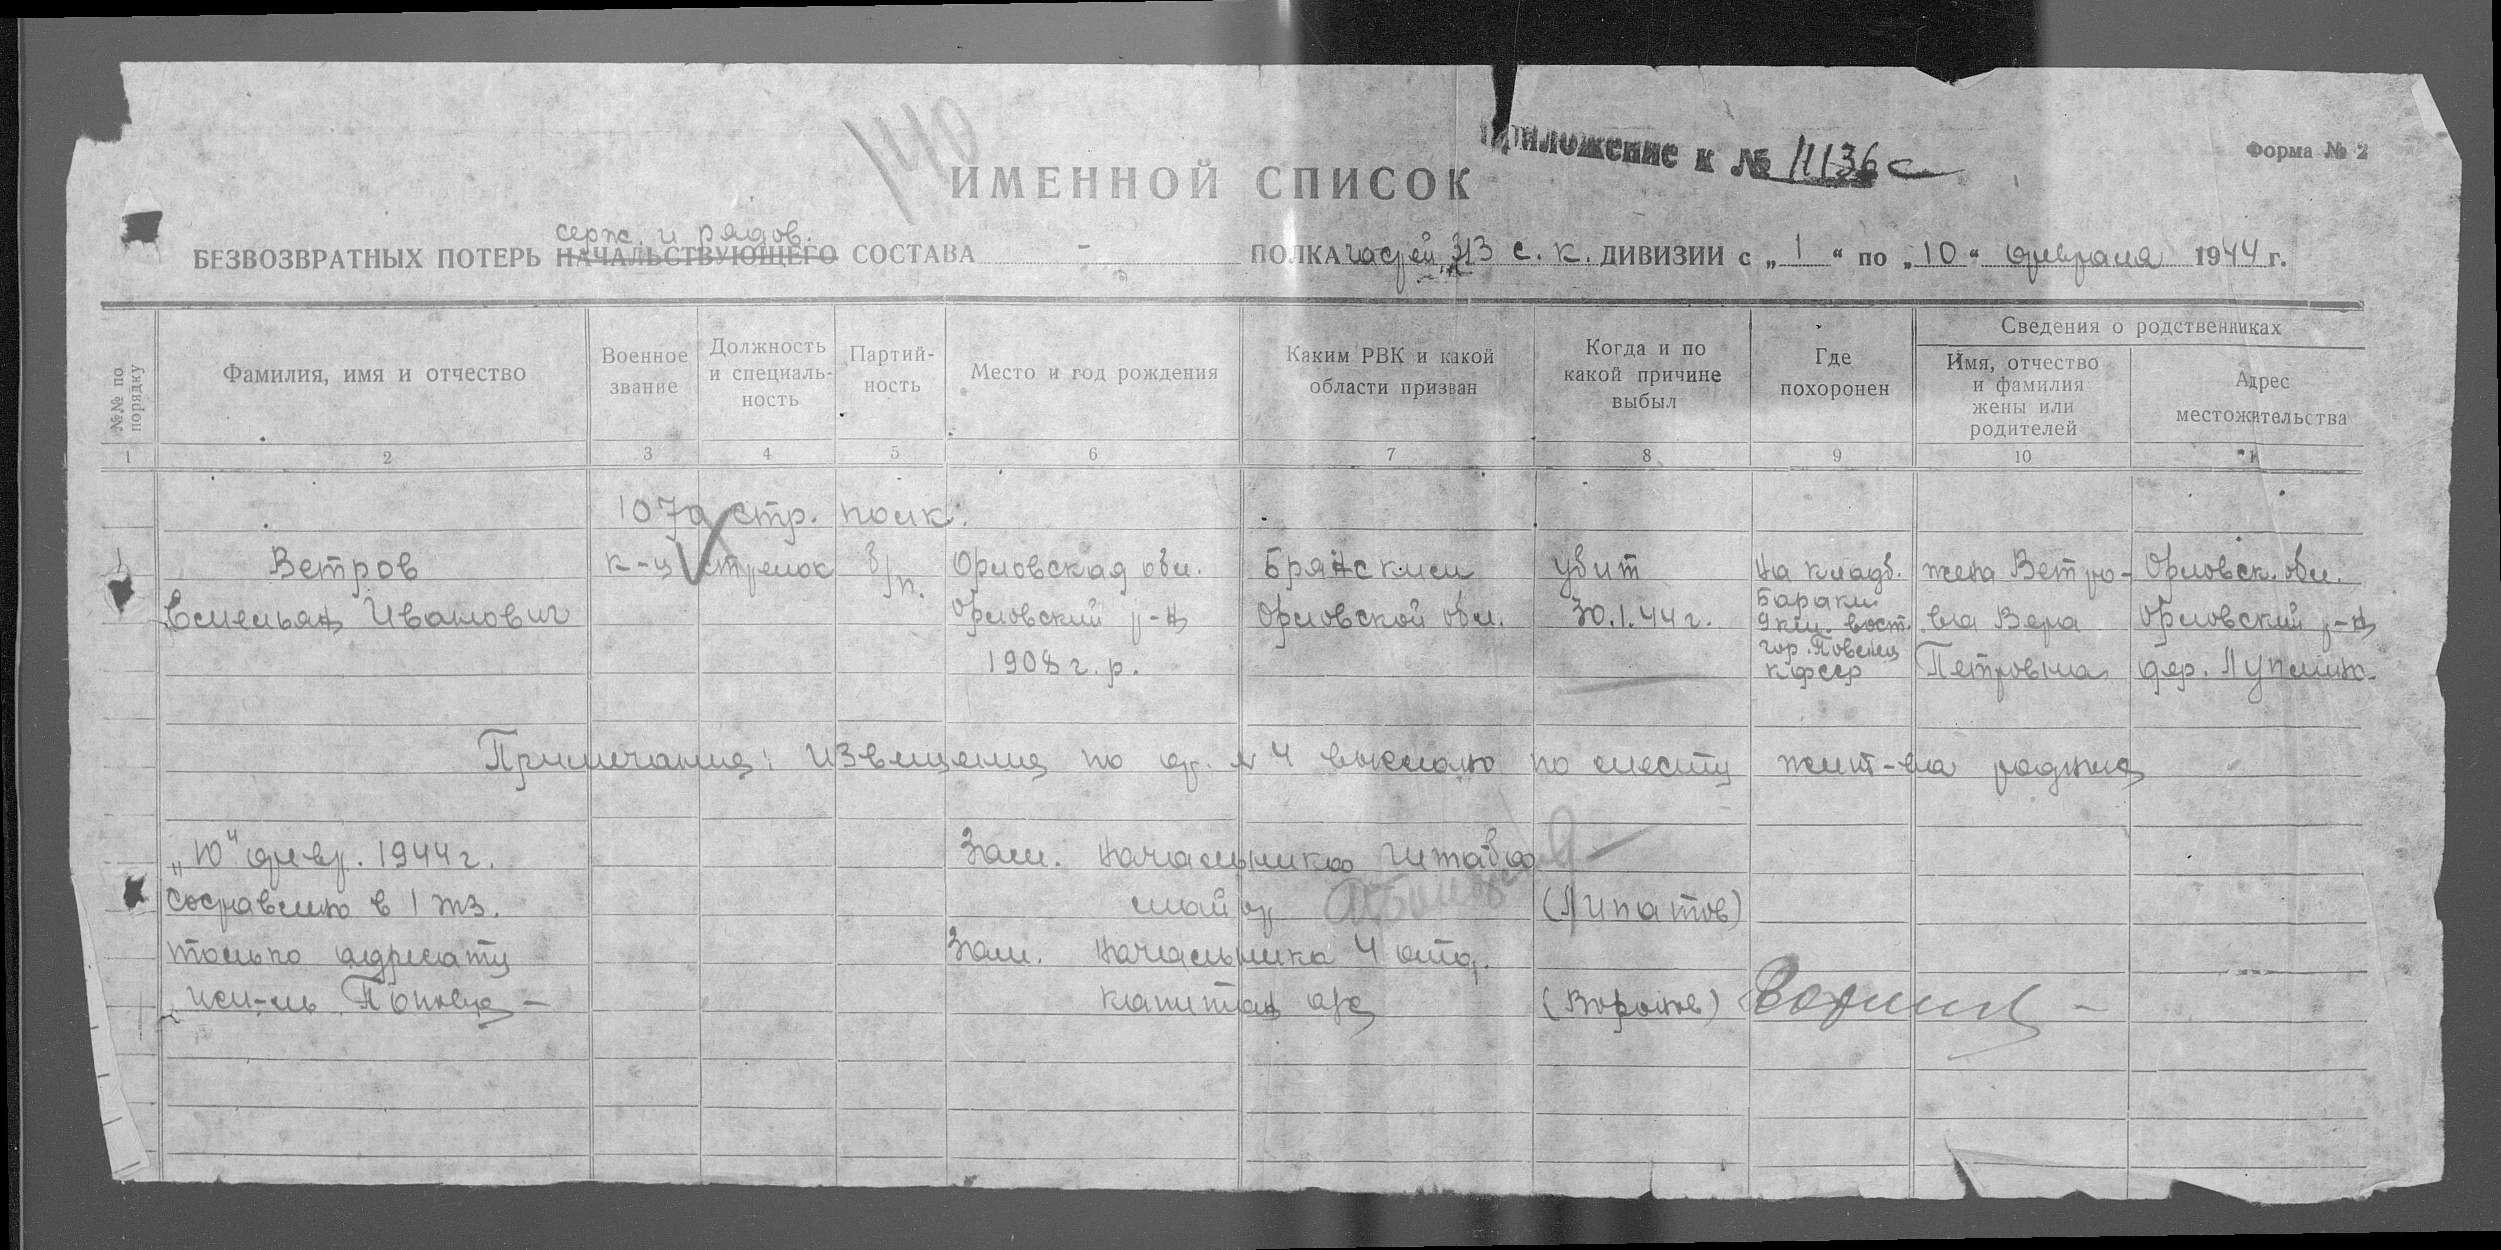 140
Приложение к № 11136с
Форма № 2
ИМЕННОЙ СПИСОК
серж. и рядов.
БЕЗВОЗВРАТНЫХ ПОТЕРЬ НАЧАЛЬСТВУЮЩЕГО СОСТАВА - ПОЛКА частей 313 с. к. ДИВИЗИИ с „1“ по „10“ февраля 1944 г.
№№ по порядку
Фамилия, имя и отчество
Военное звание
Должность и специальность
Партийность
Место и год рождения
Каким РВК и какой области призван
Когда и по какой причине выбыл
Где похоронен
Сведения о родственниках
Имя, отчество и фамилия жены или родителей
Адрес местожительства
1 2 3 4 5 6 7 8 9 10 11
107а стр. полк.
Ветров
Емельян Иванович
к-ц
стрелок
б/п.
Орловская обл.
Орловский р-н
1908 г. р.
Брянским
Орловской обл.
убит
30.1.44 г.
на кладб.
Бараки
9 км. вост.
гор. Повенец
КФССР
жена Ветро-
ва Вера
Петровна
Орловск. обл.
Орловский р-н
дер.
Примечание: извещение по ф. № 4 выслано по месту жит-ва родных
„10“ февр. 1944 г.
Составлено в 1 экз.
только адресату
исп-ль Попов
Зам. начальника штаба
майор
(Липатов)
Зам. начальника 4 отд.
капитан а/с
(Воронов)